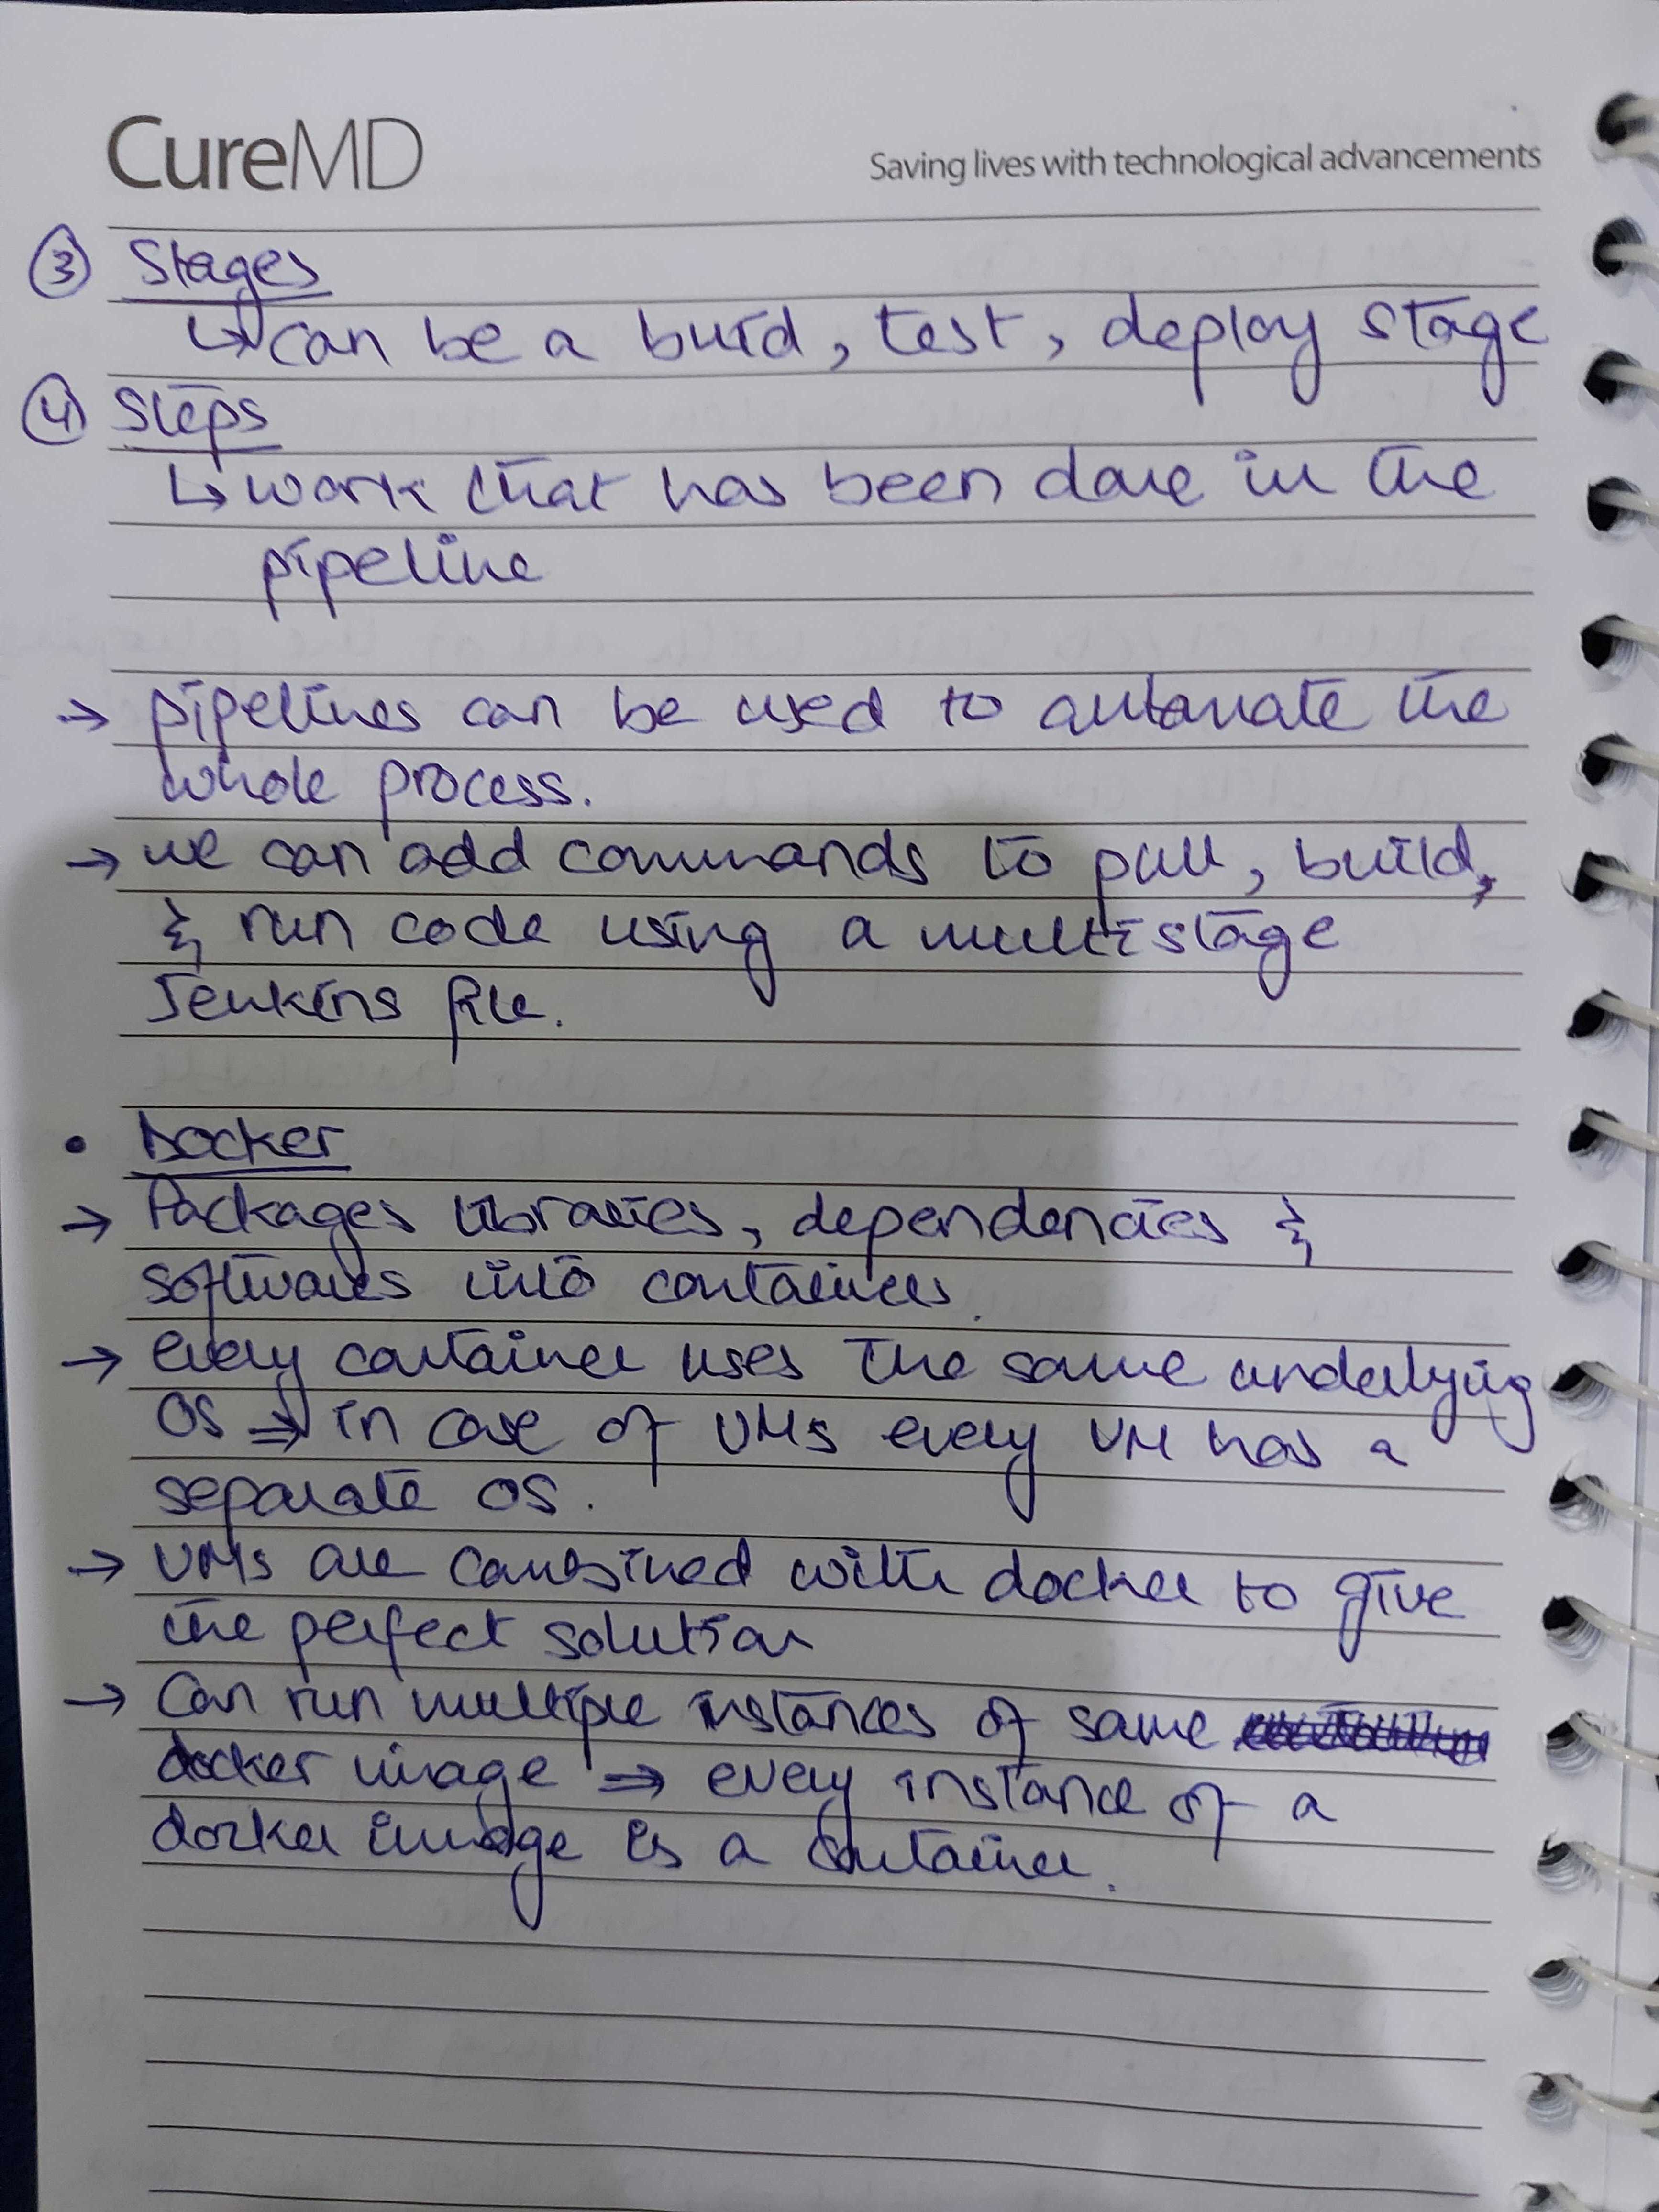 CureMD
Saving lives with technological advancements
③ Stages
↳ can be a build, test, deploy stage
④ Steps
↳ work that has been done in the
pipeline
→ pipelines can be used to automate the
whole process.
→ we can add commands to pull, build,
& run code using a multistage
Jenkins file.
• Docker
→ Packages libraries, dependencies &
softwares into containers.
→ every container uses the same underlying
OS ⇒ in case of VMs every VM has a
separate OS.
→ VMs are combined with docker to give
the perfect solution
→ Can run multiple instances of same
docker image ⇒ every instance of a
docker image is a container.